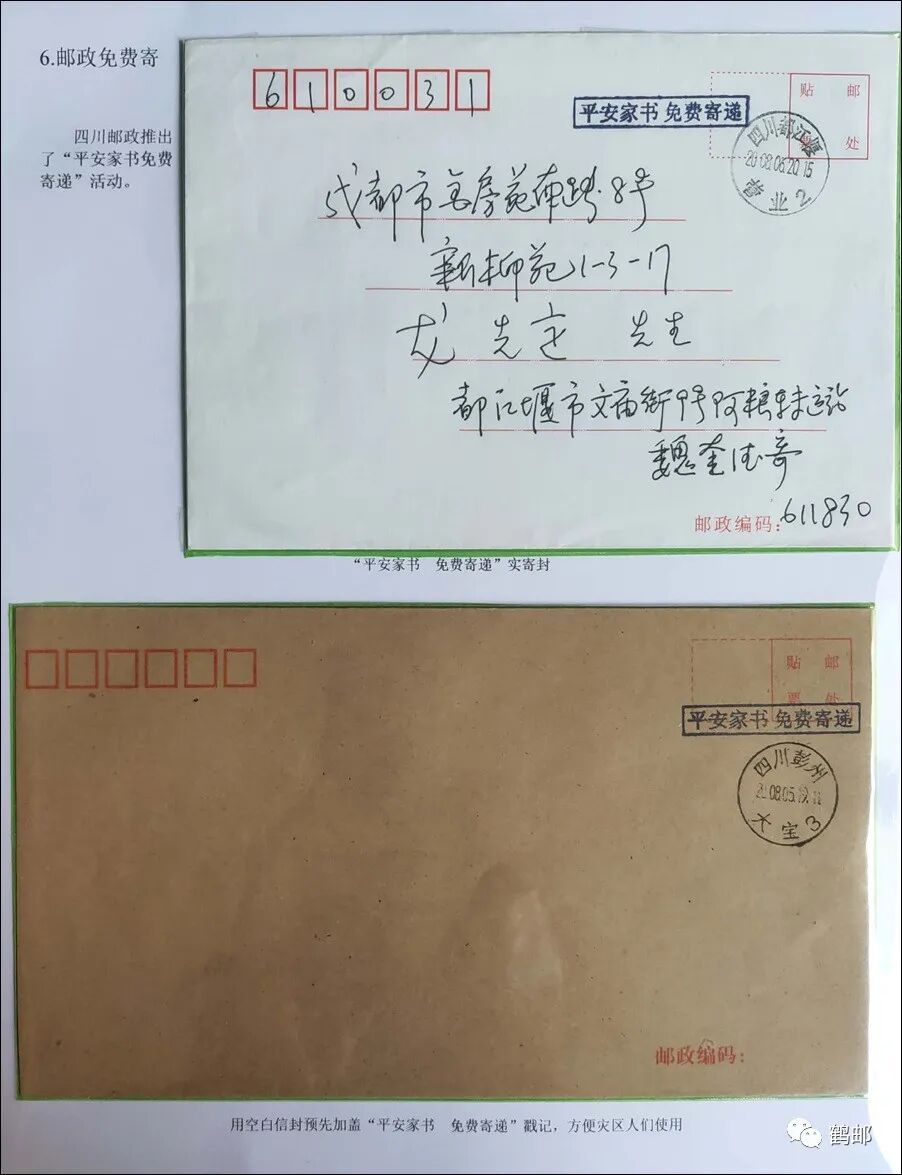 6.邮政免费寄
四川邮政推出
了“平安家书免费
寄递”活动。
610031
平安家书 免费寄递
贴 邮
票 处
四川都江堰
2008.06.20.15
营业2
成都市
苑南路8号
新柳苑1-3-17
龙先定 先生
都江堰市文庙街9号阿粮转运站
魏奎
邮政编码:611830
“平安家书 免费寄递”实寄封
贴 邮
票 处
平安家书 免费寄递
四川彭州
2008.05.19.11
大宝3
邮政编码:
用空白信封预先加盖“平安家书 免费寄递”戳记，方便灾区人们使用
鹤邮